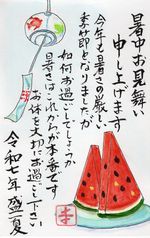 暑中お見舞い
申し上げます
今年も暑さの厳しい
季節となりましたが
如何お過ごしでしょうか
暑さはこれからが本番です
お体を大切にお過ごし下さい
令和七年 盛夏